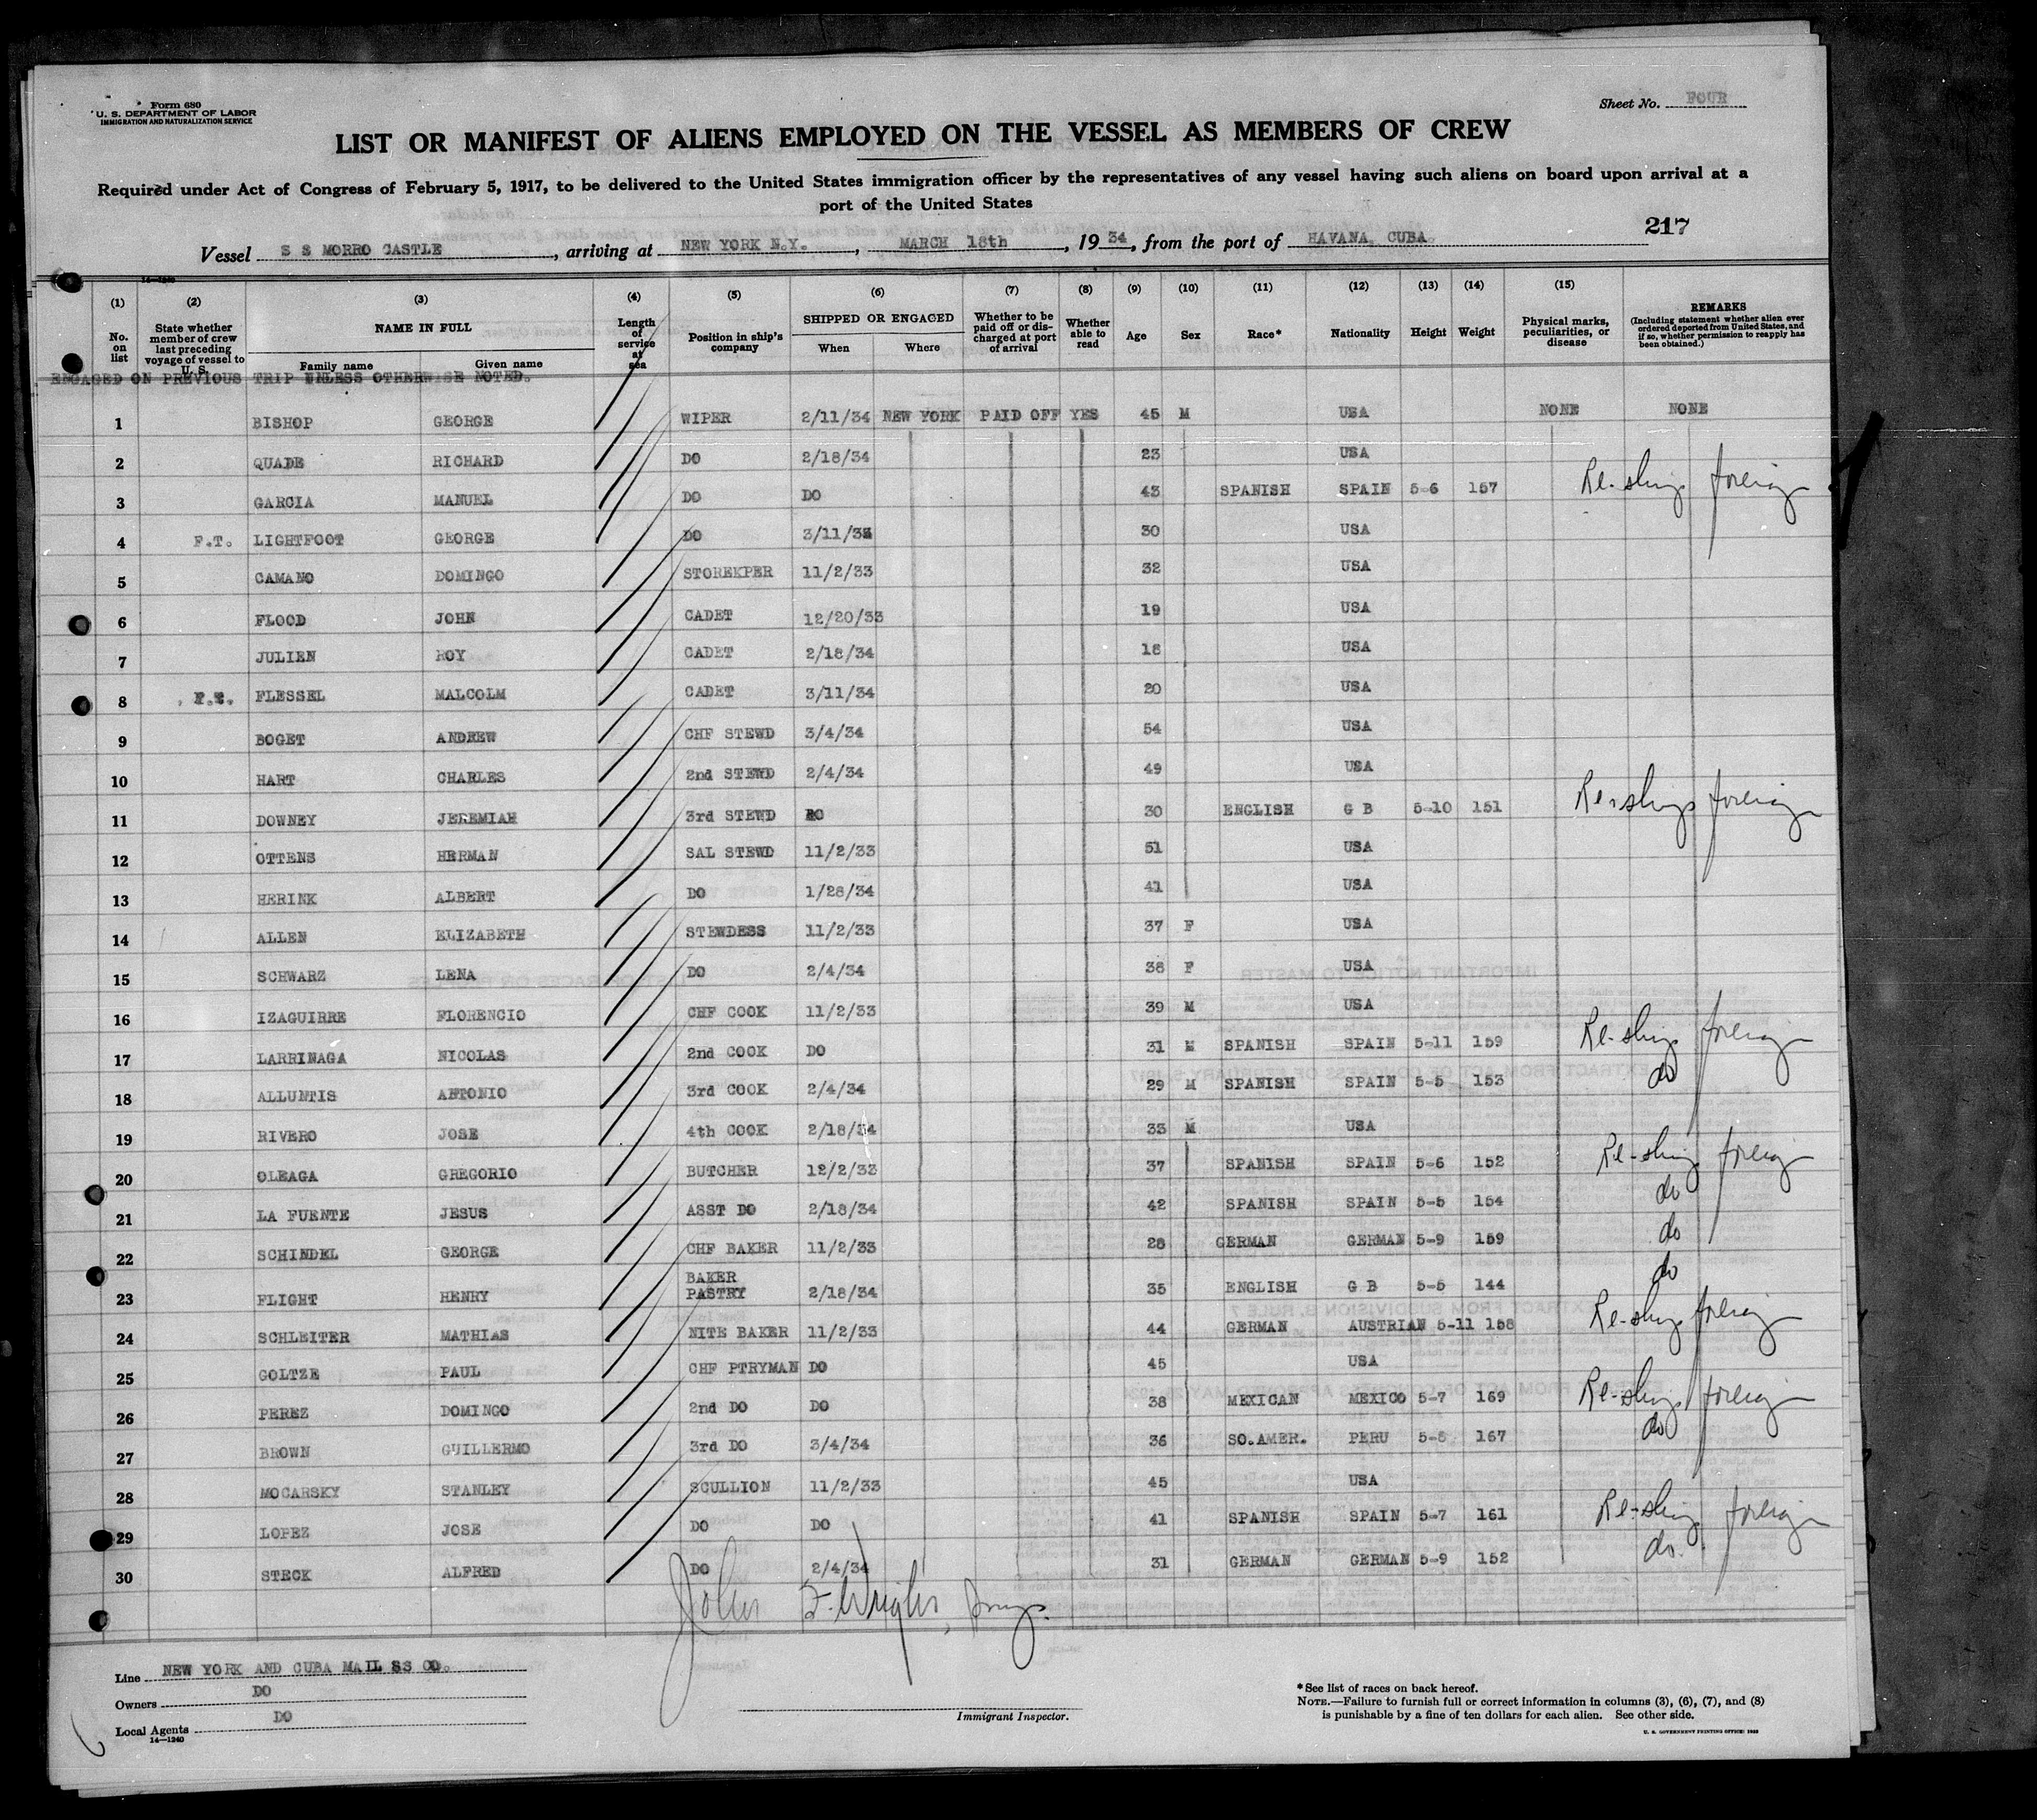 Form 680
U. S. DEPARTMENT OF LABOR
IMMIGRATION AND NATURALIZATION SERVICE
Sheet No. FOUR
LIST OR MANIFEST OF ALIENS EMPLOYED ON THE VESSEL AS MEMBERS OF CREW
Required under Act of Congress of February 5, 1917, to be delivered to the United States immigration officer by the representatives of any vessel having such aliens on board upon arrival at a
port of the United States
217
Vessel S S MORRO CASTLE, arriving at NEW YORK N.Y., MARCH 18th, 1934, from the port of HAVANA CUBA
14—1240
(1) (2) (3) (4) (5) (6) (7) (8) (9) (10) (11) (12) (13) (14) (15)
No. on list
State whether member of crew last preceding voyage of vessel to U. S.
NAME IN FULL
Family name Given name
Length of service at sea
Position in ship's company
SHIPPED OR ENGAGED
When Where
Whether to be paid off or discharged at port of arrival
Whether able to read
Age
Sex
Race*
Nationality
Height
Weight
Physical marks, peculiarities, or disease
REMARKS
(Including statement whether alien ever ordered deported from United States, and if so, whether permission to reapply has been obtained.)
ENGAGED ON PREVIOUS TRIP UNLESS OTHERWISE NOTED.
1 BISHOP GEORGE WIPER 2/11/34 NEW YORK PAID OFF YES 45 M USA NONE NONE
2 QUADE RICHARD DO 2/18/34 23 USA
3 GARCIA MANUEL DO DO 43 SPANISH SPAIN 5-6 157 Re-ship foreign
4 F.T. LIGHTFOOT GEORGE DO 3/11/34 30 USA
5 CAMANO DOMINGO STOREKPER 11/2/33 32 USA
6 FLOOD JOHN CADET 12/20/33 19 USA
7 JULIEN ROY CADET 2/18/34 18 USA
8 F.T. FLESSEL MALCOLM CADET 3/11/34 20 USA
9 BOGET ANDREW CHF STEWD 3/4/34 54 USA
10 HART CHARLES 2nd STEWD 2/4/34 49 USA
11 DOWNEY JEREMIAH 3rd STEWD DO 30 ENGLISH G B 5-10 151 Re-ship foreign
12 OTTENS HERMAN SAL STEWD 11/2/33 51 USA
13 HERINK ALBERT DO 1/28/34 41 USA
14 ALLEN ELIZABETH STEWDESS 11/2/33 37 F USA
15 SCHWARZ LENA DO 2/4/34 38 F USA
16 IZAGUIRRE FLORENCIO CHF COOK 11/2/33 39 M USA
17 LARRINAGA NICOLAS 2nd COOK DO 31 M SPANISH SPAIN 5-11 159 Re-ship foreign
18 ALLUNTIS ANTONIO 3rd COOK 2/4/34 29 M SPANISH SPAIN 5-5 153 do
19 RIVERO JOSE 4th COOK 2/18/34 33 M USA
20 OLEAGA GREGORIO BUTCHER 12/2/33 37 SPANISH SPAIN 5-6 152 Re-ship foreign
21 LA FUENTE JESUS ASST DO 2/18/34 42 SPANISH SPAIN 5-5 154 do
22 SCHINDEL GEORGE CHF BAKER 11/2/33 28 GERMAN GERMAN 5-9 159 do
23 FLIGHT HENRY BAKER PASTRY 2/18/34 35 ENGLISH G B 5-5 144 do
24 SCHLEITER MATHIAS NITE BAKER 11/2/33 44 GERMAN AUSTRIAN 5-11 158 Re-ship foreign
25 GOLTZE PAUL CHF PTRYMAN DO 45 USA
26 PEREZ DOMINGO 2nd DO DO 38 MEXICAN MEXICO 5-7 169 Re-ship foreign
27 BROWN GUILLERMO 3rd DO 3/4/34 36 SO.AMER. PERU 5-8 167 do
28 MOCARSKY STANLEY SCULLION 11/2/33 45 USA
29 LOPEZ JOSE DO DO 41 SPANISH SPAIN 5-7 161 Re-ship foreign
30 STECK ALFRED DO 2/4/34 31 GERMAN GERMAN 5-9 152 do.
John F. Wright,
Line NEW YORK AND CUBA MAIL SS CO.
Owners DO
Local Agents DO
14—1240
Immigrant Inspector.
*See list of races on back hereof.
NOTE.—Failure to furnish full or correct information in columns (3), (6), (7), and (8)
is punishable by a fine of ten dollars for each alien. See other side.
U. S. GOVERNMENT PRINTING OFFICE: 1932